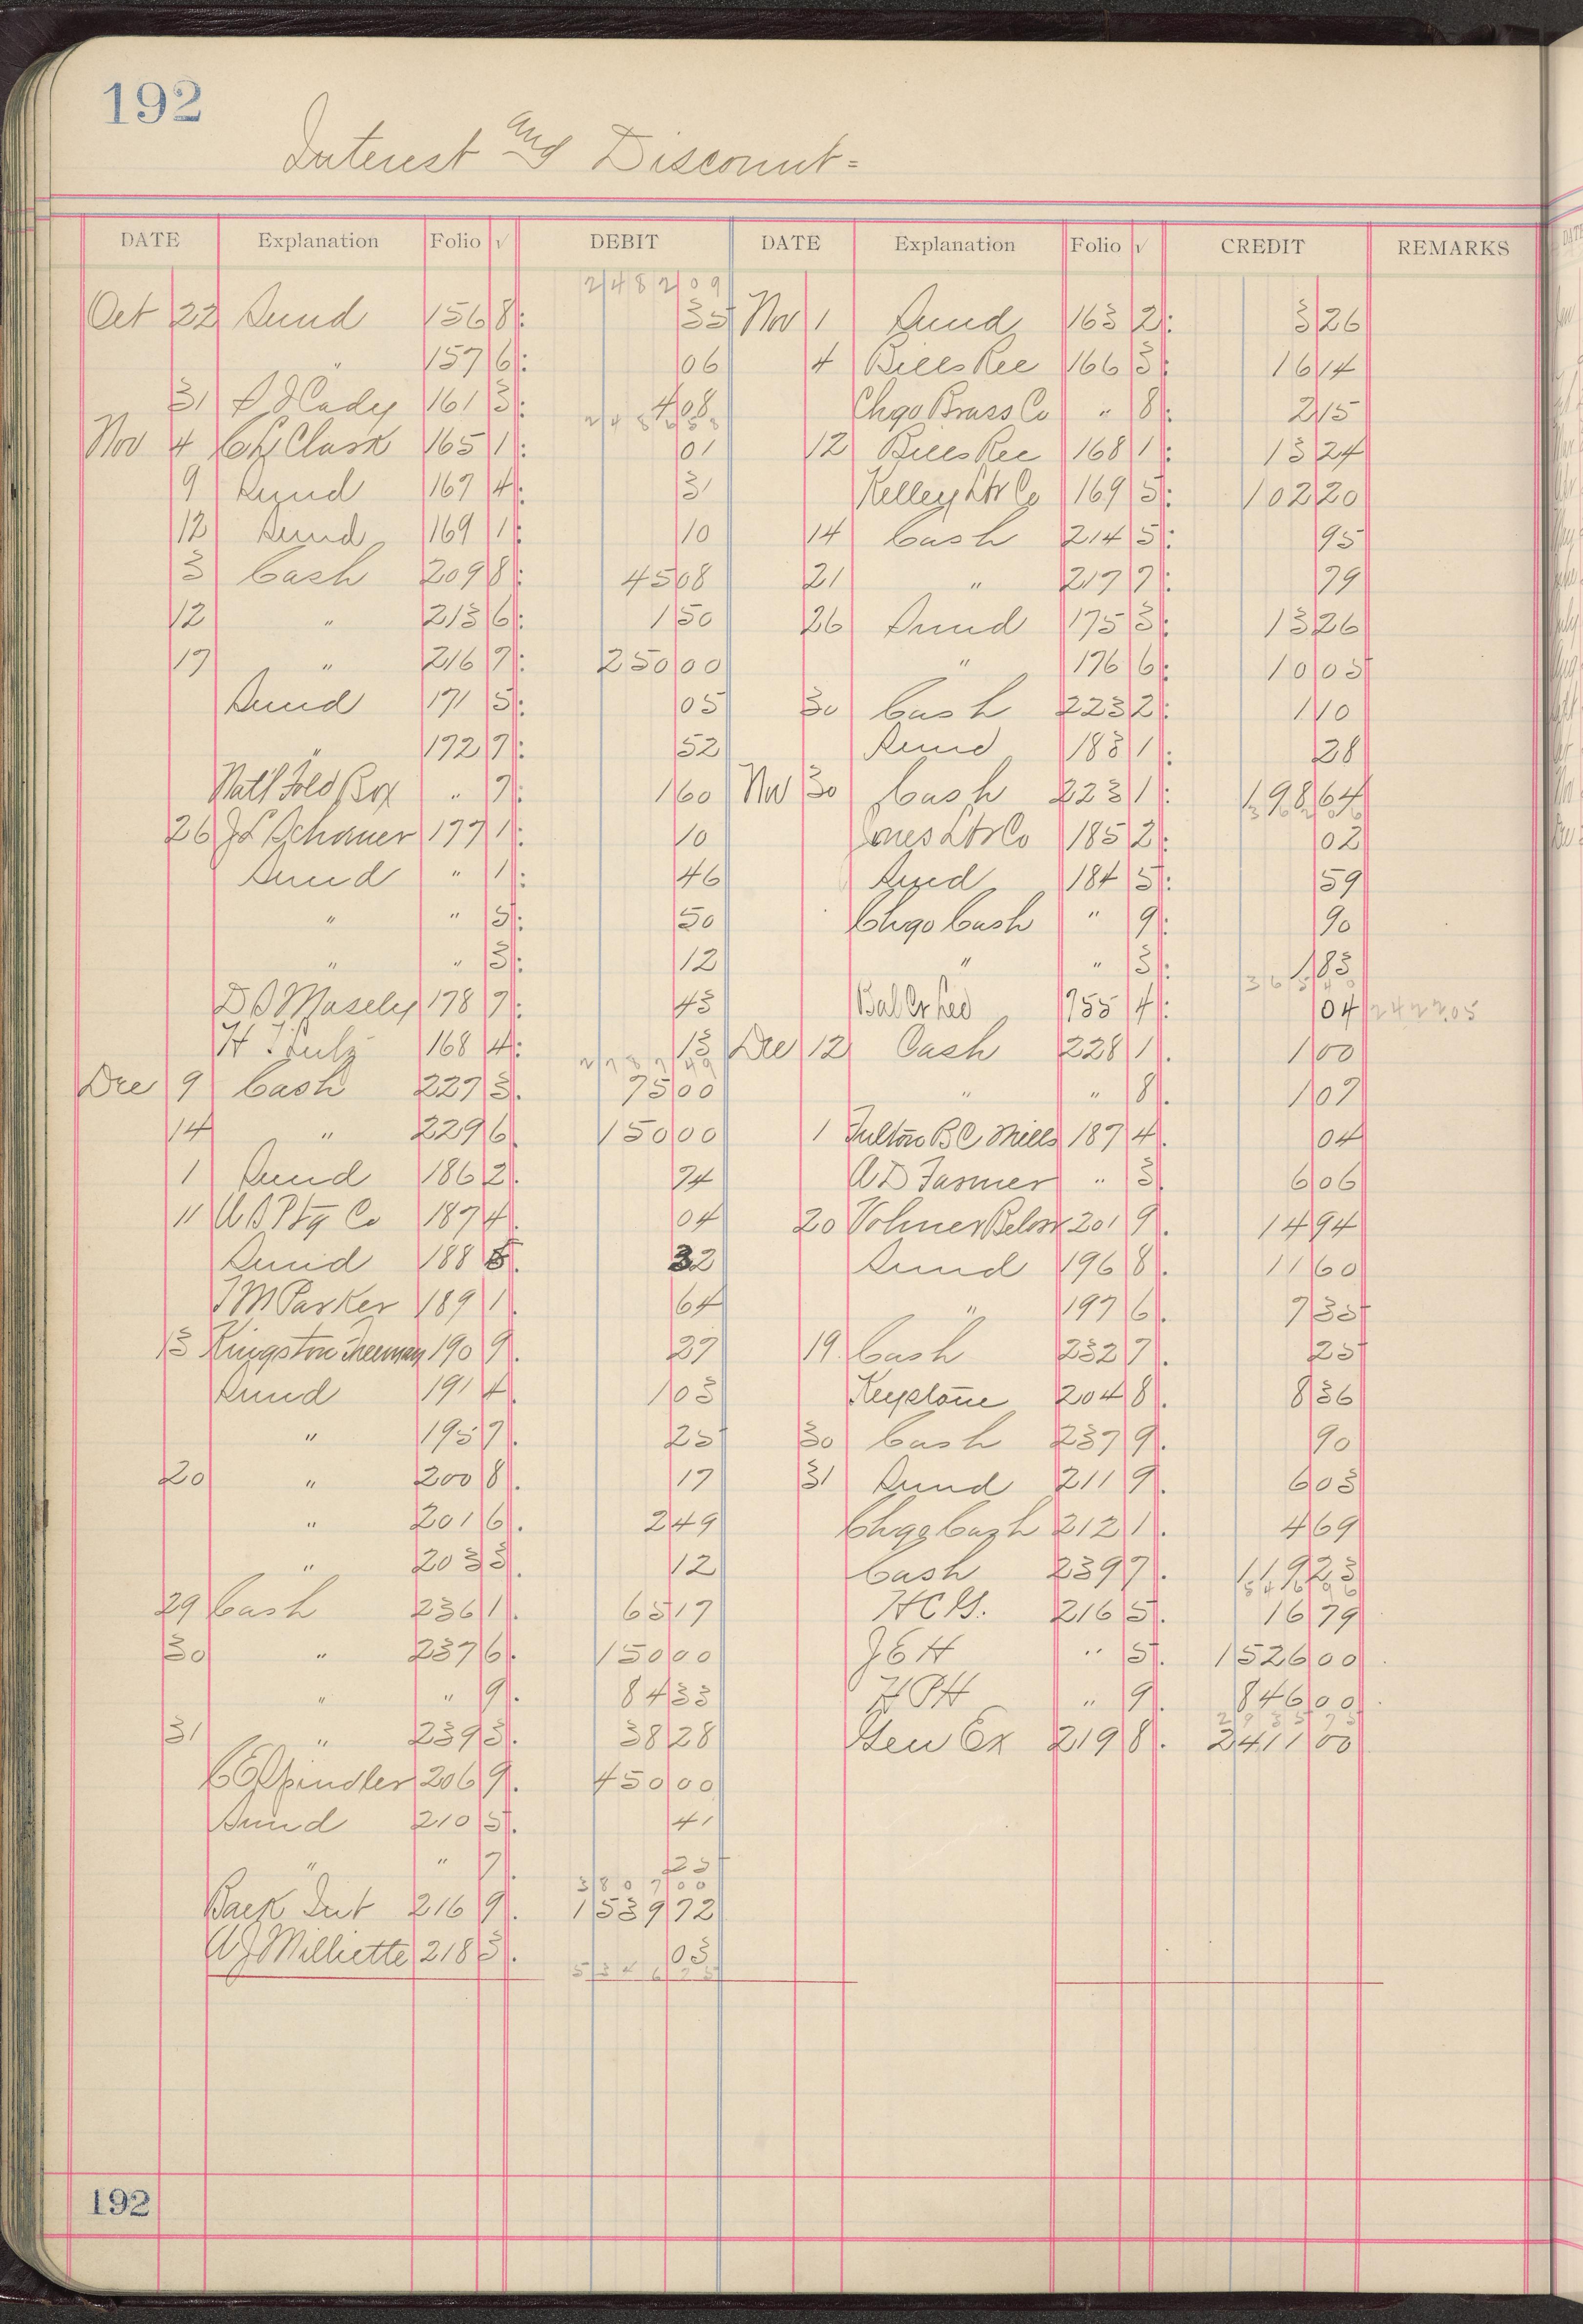 192
Interest and Discount =
DATE Explanation Folio √ DEBIT DATE Explanation Folio √ CREDIT REMARKS
2482 09
Oct 22 Sund 156 8: 35 Nov 1 Sund 163 2: 3 26
" 157 6: 06 4 Bills Rec 166 3: 16 14
31 Cady 161 3: 4 08 Chgo Brass Co " 8: 2 15
Nov 4 Clark 165 1: 01 12 Bills Rec 168 1: 13 24
9 Sund 167 4: 31 Kelley Co 169 5: 102 20
12 Sund 169 1: 10 14 Cash 214 5: 95
3 Cash 209 8: 45 08 21 " 217 7: 79
12 " 213 6: 1 50 26 Sund 175 3: 13 26
17 " 216 7: 250 00 " 176 6: 10 05
Sund 171 5: 05 30 Cash 223 2: 1 10
" 172 7: 52 Sund 183 1: 28
Nat'l Fold Box " 7: 1 60 Nov 30 Cash 223 1: 198 64
26 J L 177 1: 10 Jones Co 185 2: 02
Sund " 1: 46 Sund 184 5: 59
" " 5: 50 Chgo Cash " 9: 90
" " 3: 12 " " 3: 1 83
D S Mosely 178 7: 43 Bal 955 4: 04 2422.05
H 168 4: 13 Dec 12 Cash 228 1. 1 00
Dec 9 Cash 227 3. 75 00 " " 8. 1 07
14 " 229 6. 150 00 1 Fulton B C Mills 187 4. 04
1 Sund 186 2. 74 A D Farmer " 3. 6 06
11 U S Ptg Co 187 4. 04 20 201 9. 14 94
Sund 188 5. 32 Sund 196 8. 11 60
J M Parker 189 1. 64 " 197 6. 7 35
13 Kingston Freeman 190 9. 27 19 Cash 232 7. 25
Sund 191 4. 1 03 Keystone 204 8. 8 36
" 195 7. 25 30 Cash 237 9. 90
20 " 200 8. 17 31 Sund 211 9. 6 03
" 201 6. 2 49 Chgo Cash 212 1. 4 69
" 203 3. 12 Cash 239 7. 119 23
29 Cash 236 1. 65 17 216 5. 16 79
30 " 237 6. 150 00 J E H " 5. 1526 00
" " 9. 84 33 H P H " 9. 846 00
31 " 239 3. 38 28 Gen Ex 219 8. 2411 00
C E Spindler 206 9. 450 00
Sund 210 5. 41
" " 7. 25
3807 00
Back Int 216 9. 1539 72
A J Milliette 218 3. 03
192